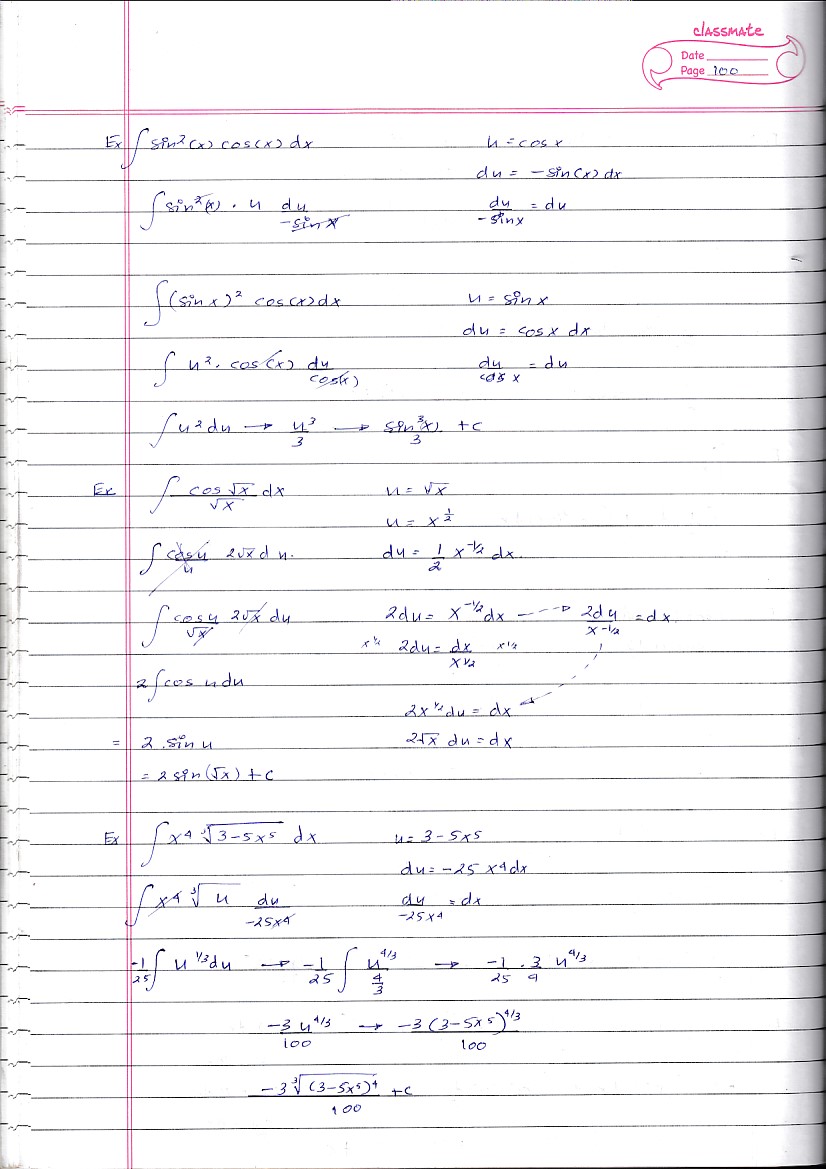 classmate
Date
Page 100
Ex ∫ sin²(x) cos(x) dx u = cos x
du = -sin(x) dx
∫ sin²(x) · u du/-sin x du/-sin x = du
∫ (sin x)² cos(x) dx u = sin x
du = cos x dx
∫ u² · cos(x) du/cos(x) du/cos x = du
∫ u² du → u³/3 → sin³(x)/3 + c
Ex ∫ cos √x/√x dx u = √x
u = x^(1/2)
∫ cos u/u 2√x du. du = 1/2 x^(-1/2) dx.
∫ cos u/√x 2√x du 2du = x^(-1/2) dx → 2du/x^(-1/2) = dx
x^(1/2) 2du = dx/x^(1/2) x^(1/2)
2 ∫ cos u du
2x^(1/2) du = dx
= 2 . sin u 2√x du = dx
= 2 sin(√x) + c
Ex ∫ x⁴ ∛(3-5x⁵) dx u = 3-5x⁵
du = -25 x⁴ dx
∫ x⁴ ∛u du/-25x⁴ du/-25x⁴ = dx
-1/25 ∫ u^(1/3) du → -1/25 ∫ u^(4/3)/(4/3) → -1/25 · 3/4 u^(4/3)
-3 u^(4/3)/100 → -3 (3-5x⁵)^(4/3)/100
-3 ∛((3-5x⁵)⁴)/100 + c